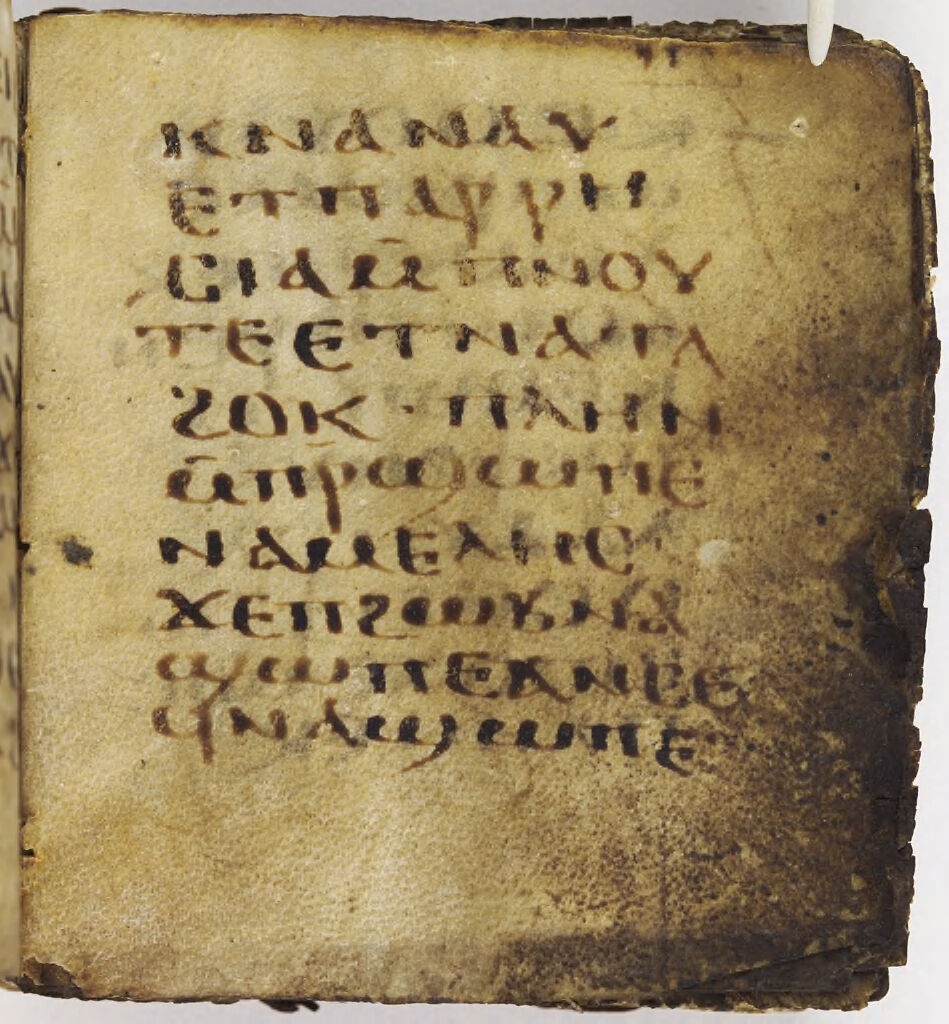 ⲕⲛⲁⲛⲁⲩ
ⲉⲧⲡⲁⲣⲣⲏ
ⲥⲓⲁⲙ̄ⲡⲛⲟⲩ
ⲧⲉⲉⲧⲛⲁⲧⲁ
ϩⲟⲕ · ⲡⲗⲏⲛ
ⲙ̄ⲡⲣ̄ϣⲱⲡⲉ
ⲛⲁⲙⲉⲗⲏⲥ
ϫⲉⲡϩⲱⲃⲛⲁ
ϣⲱⲡⲉⲁⲛⲉⲉ
ϥⲛⲁϣⲱⲡⲉ